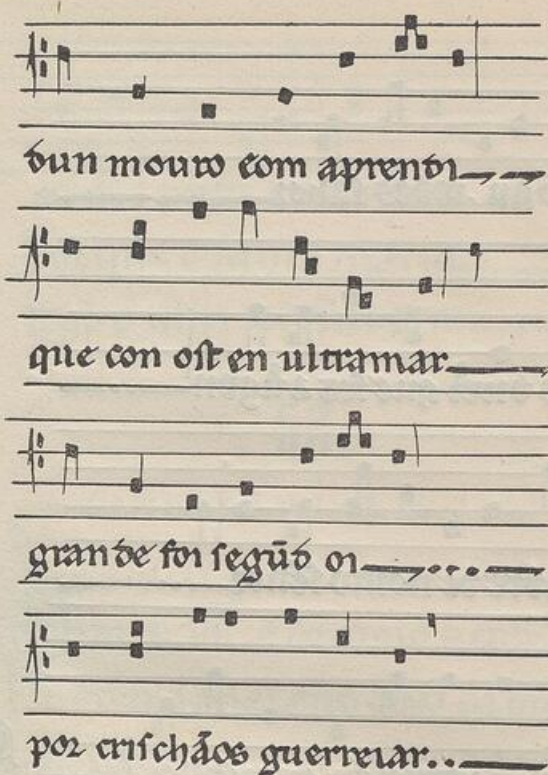 dun mouro com aprendi
que con ost en ultramar
grande foi segũd oi
por crischãos guerreiar..